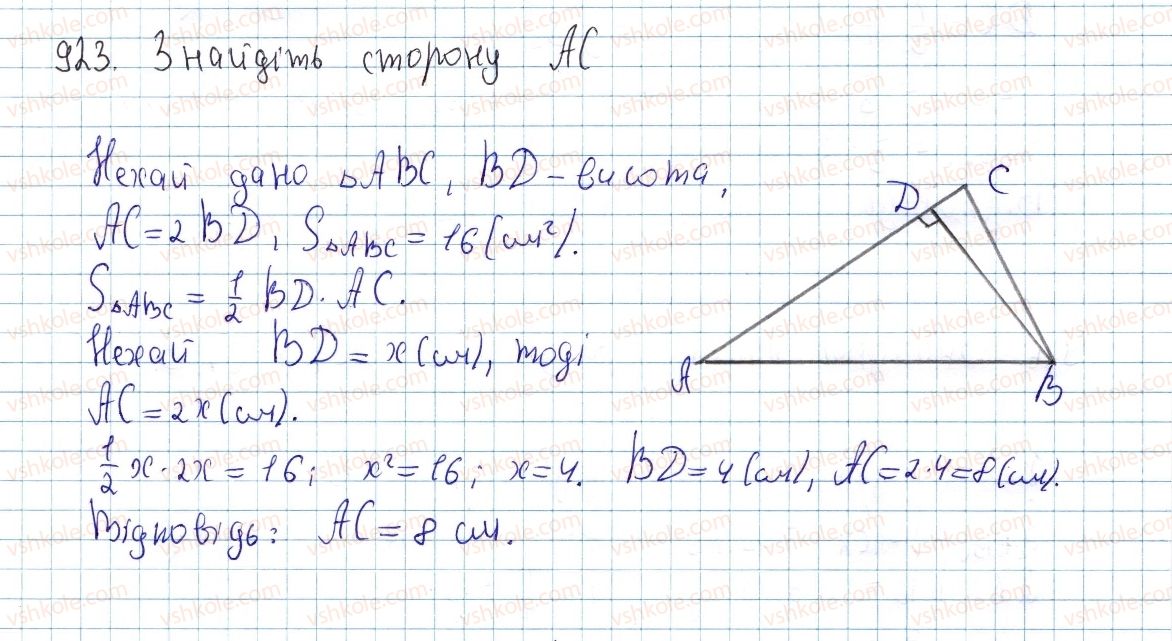 923. Знайдіть сторону AC
Нехай дано △ABC, BD – висота,
AC = 2 BD, S△ABC = 16 (см²).
S△ABC = 1/2 BD · AC.
Нехай BD = x (см), тоді
AC = 2x (см).
1/2 x · 2x = 16; x² = 16; x = 4. BD = 4 (см), AC = 2·4 = 8 (см).
Відповідь: AC = 8 см.
D C
A B
vshkole.com